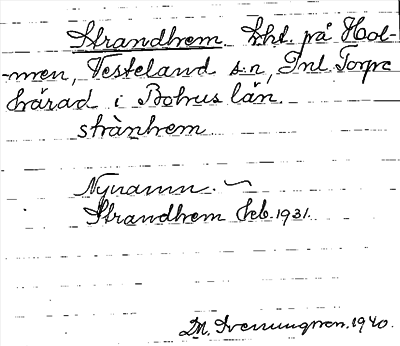 Strandhem lht. på Hol-
-men, Vesteland s:n, Inl. Torpe
härad i Bohus län.
strànhem
Nynamn.
Strandhem Feb. 1931.
M. 1940.